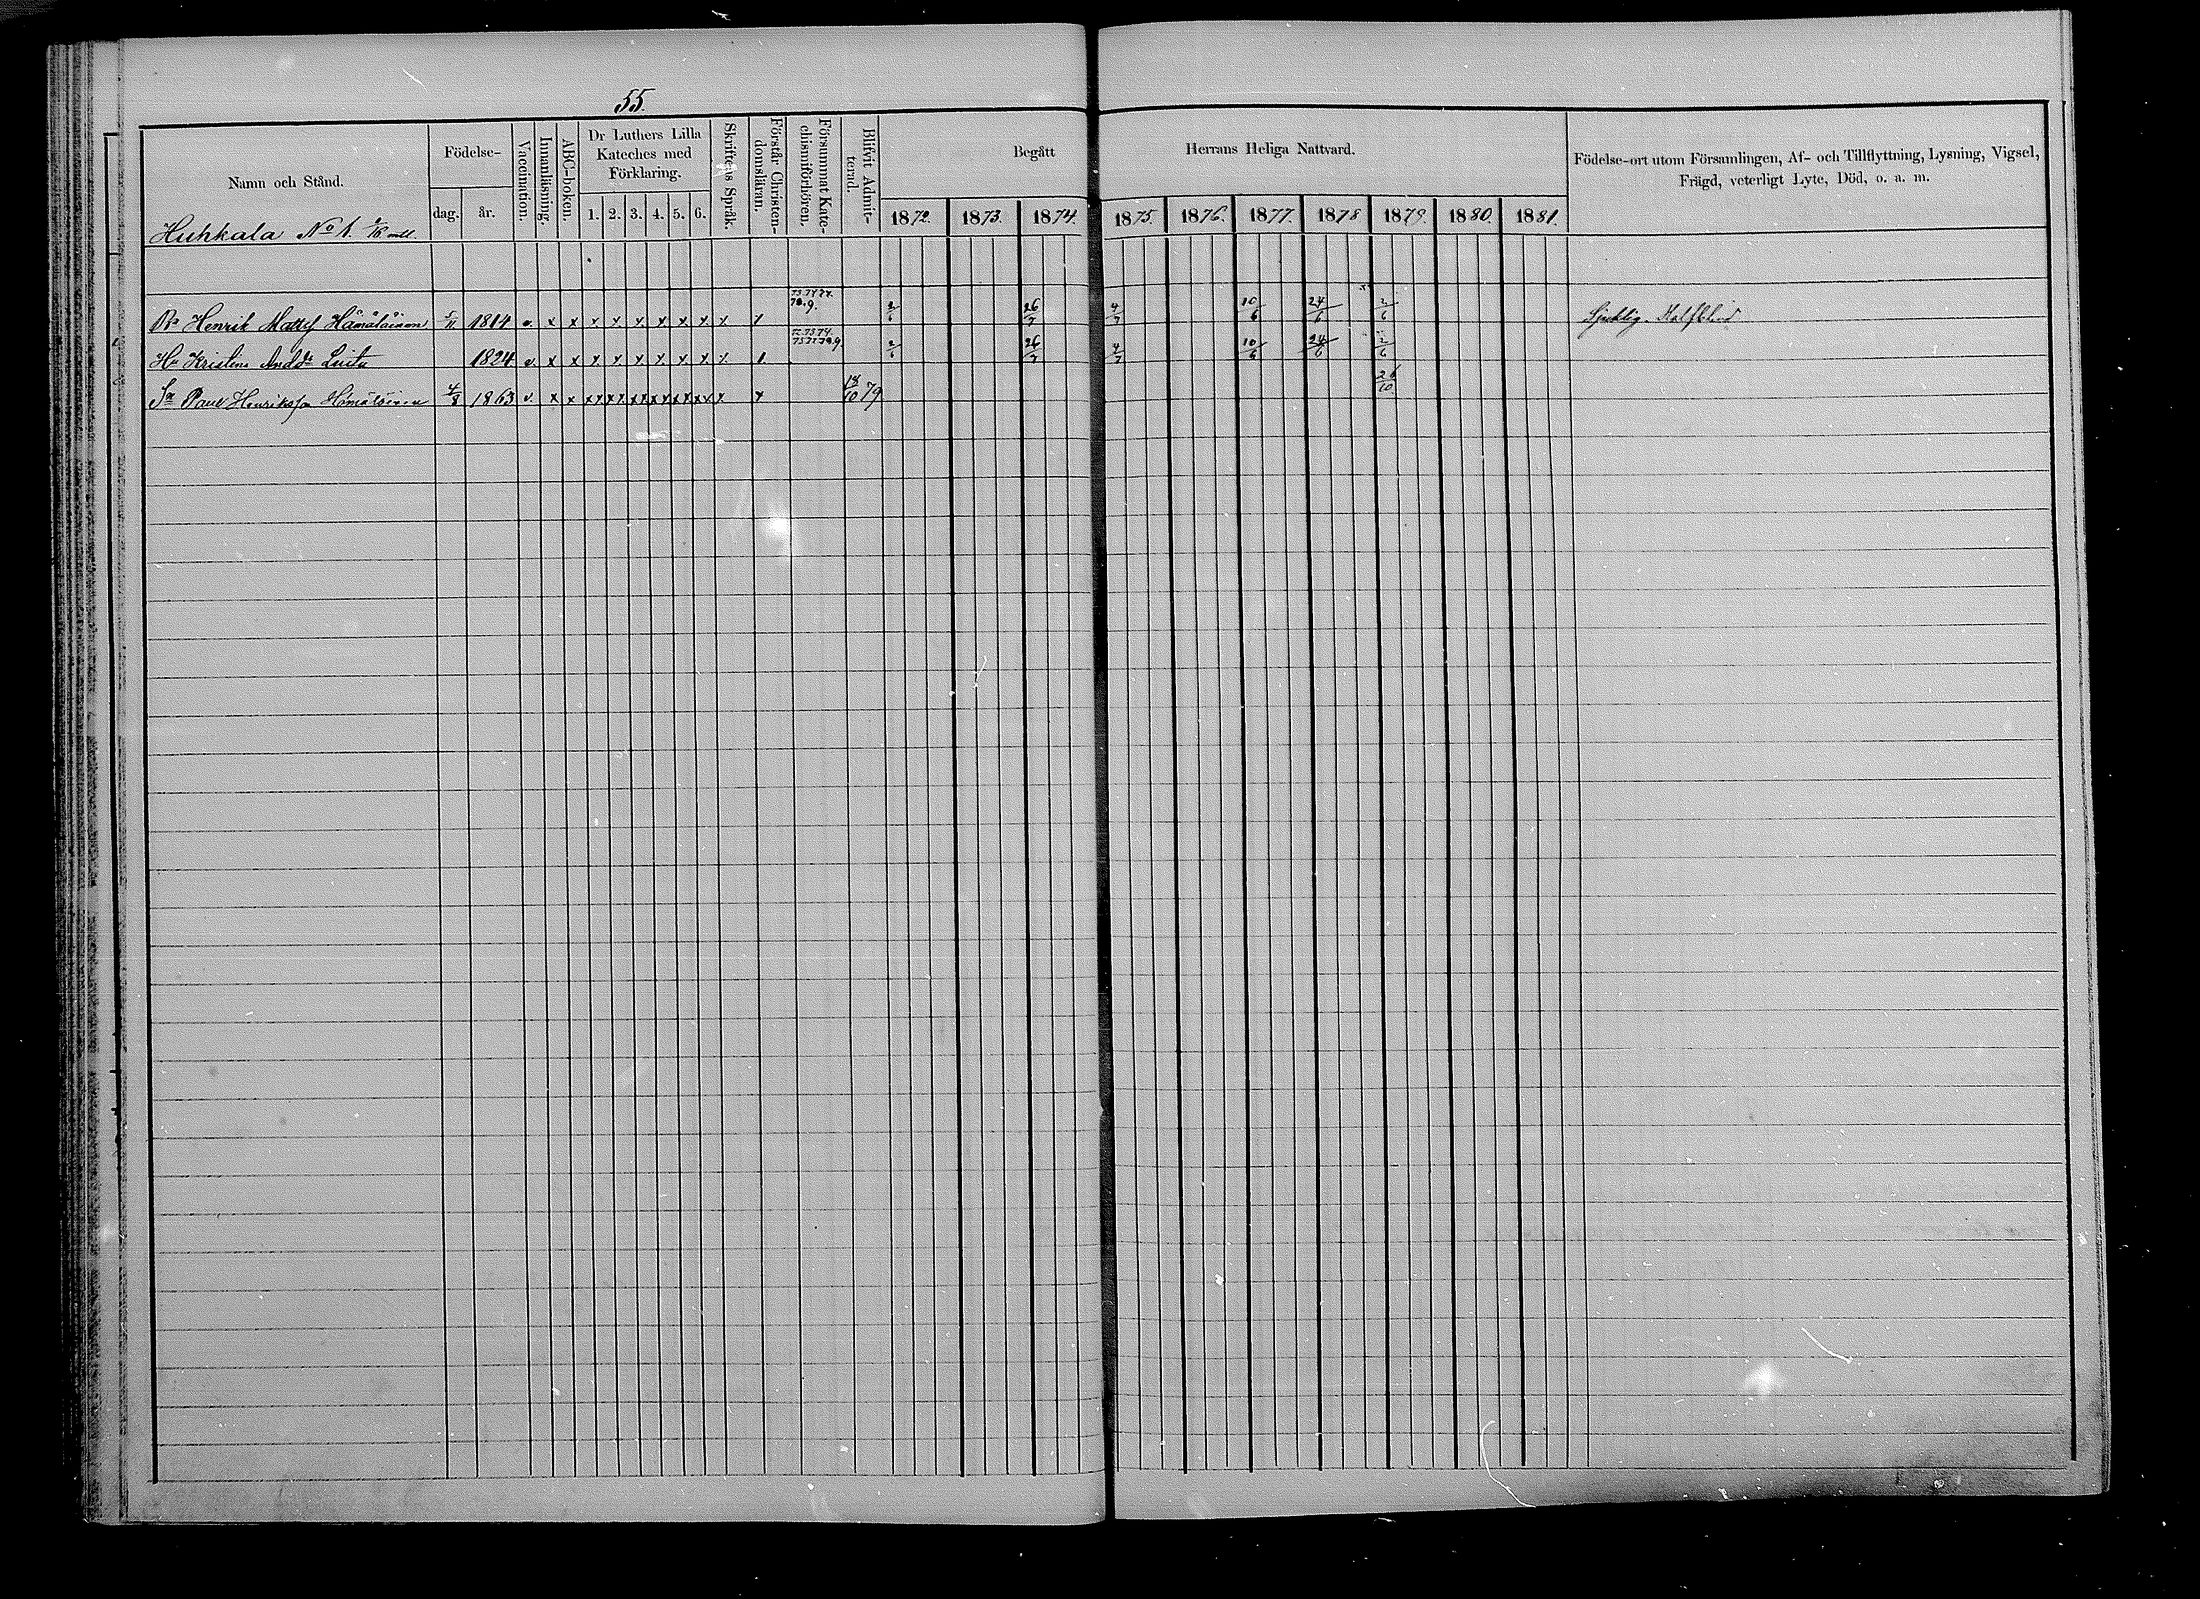 55.
Namn och Stånd.
Födelse-
dag. år.
Vaccination.
Innanläsning.
ABC-boken.
Dr Luthers Lilla
Kateches med
Förklaring.
1. 2. 3. 4. 5. 6.
Skriftens Språk.
Förstår Christen-
domsläran.
Försummat Kate-
chismiförhören.
Blifvit Admit-
terad.
Begått Herrans Heliga Nattvard.
1872. 1873. 1874. 1875. 1876. 1877. 1878 1879. 1880. 1881.
Födelse-ort utom Församlingen, Af- och Tillflyttning, Lysning, Vigsel,
Frägd, veterligt Lyte, Död, o. a. m.
Huhkala No 1.
Henrik Hämäläinen 1814 v. x x x x x x x x x x 2/6 26/7 4/7 10/6 24/6 2/6 Sjuklig. Halfblind
Hu Kristina 1824 v. x x x x x x x x x 2/6 26/7 4/7 10/6 24/6 2/6
Sn Paul Henriksson Hämäläinen 4/8 1863 v. x x x x x x x x x x x x x x x x x 18/10 79 26/10